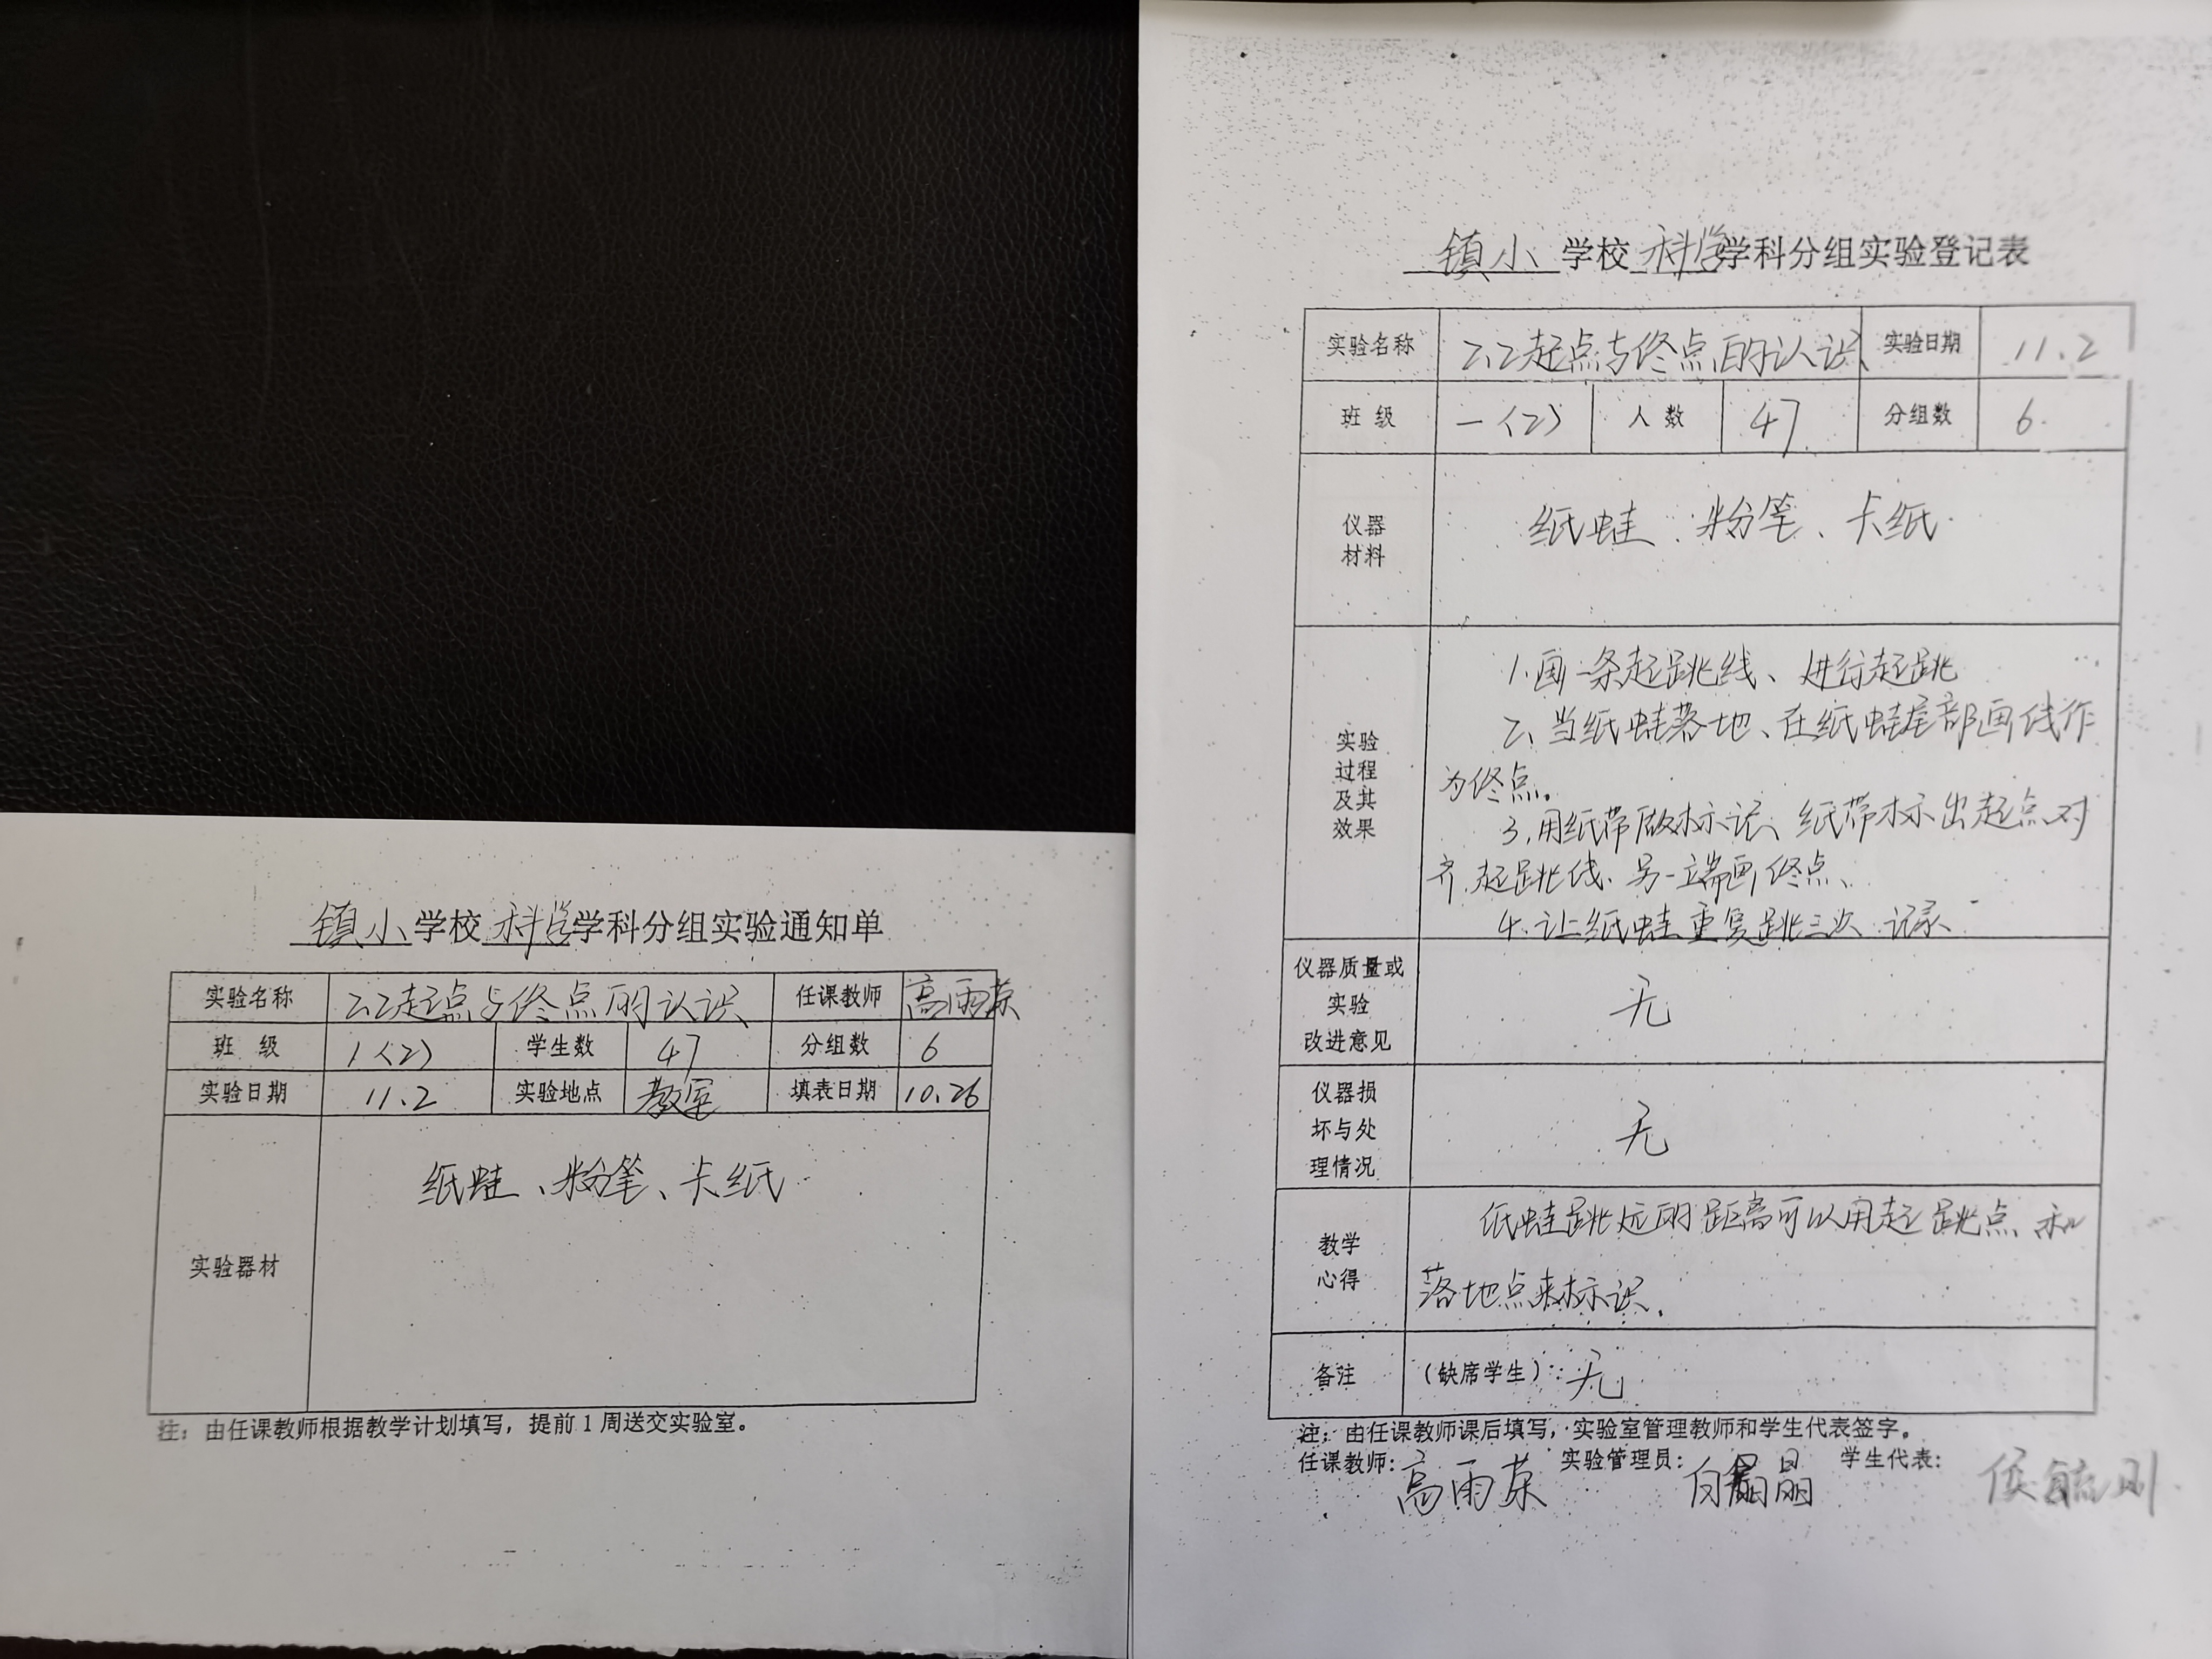 镇小学校科学学科分组实验通知单
实验名称 2.2起点与终点的认识 任课教师 高雨荣
班 级 1（2） 学生数 47 分组数 6
实验日期 11.2 实验地点 教室 填表日期 10.26
实验器材 纸蛙、粉笔、卡纸
注：由任课教师根据教学计划填写，提前1周送交实验室。
镇小学校科学学科分组实验登记表
实验名称 2.2起点与终点的认识 实验日期 11.2
班 级 一（2） 人 数 47 分组数 6
仪器
材料
纸蛙、粉笔、卡纸
实验
过程
及其
效果
1.画一条起跳线、进行起跳
2、当纸蛙落地、在纸蛙尾部画线作
为终点。
3.用纸带做标记、纸带标出起点对
齐起跳线、另一端画终点、
4.让纸蛙重复跳三次 记录
仪器质量或
实验
改进意见
无
仪器损
坏与处
理情况
无
教学
心得
纸蛙跳远的距离可以用起跳点和
落地点来标识.
备注 （缺席学生）：无
注：由任课教师课后填写，实验室管理教师和学生代表签字。
任课教师：高雨荣 实验管理员：白晶晶 学生代表：侯毓刚